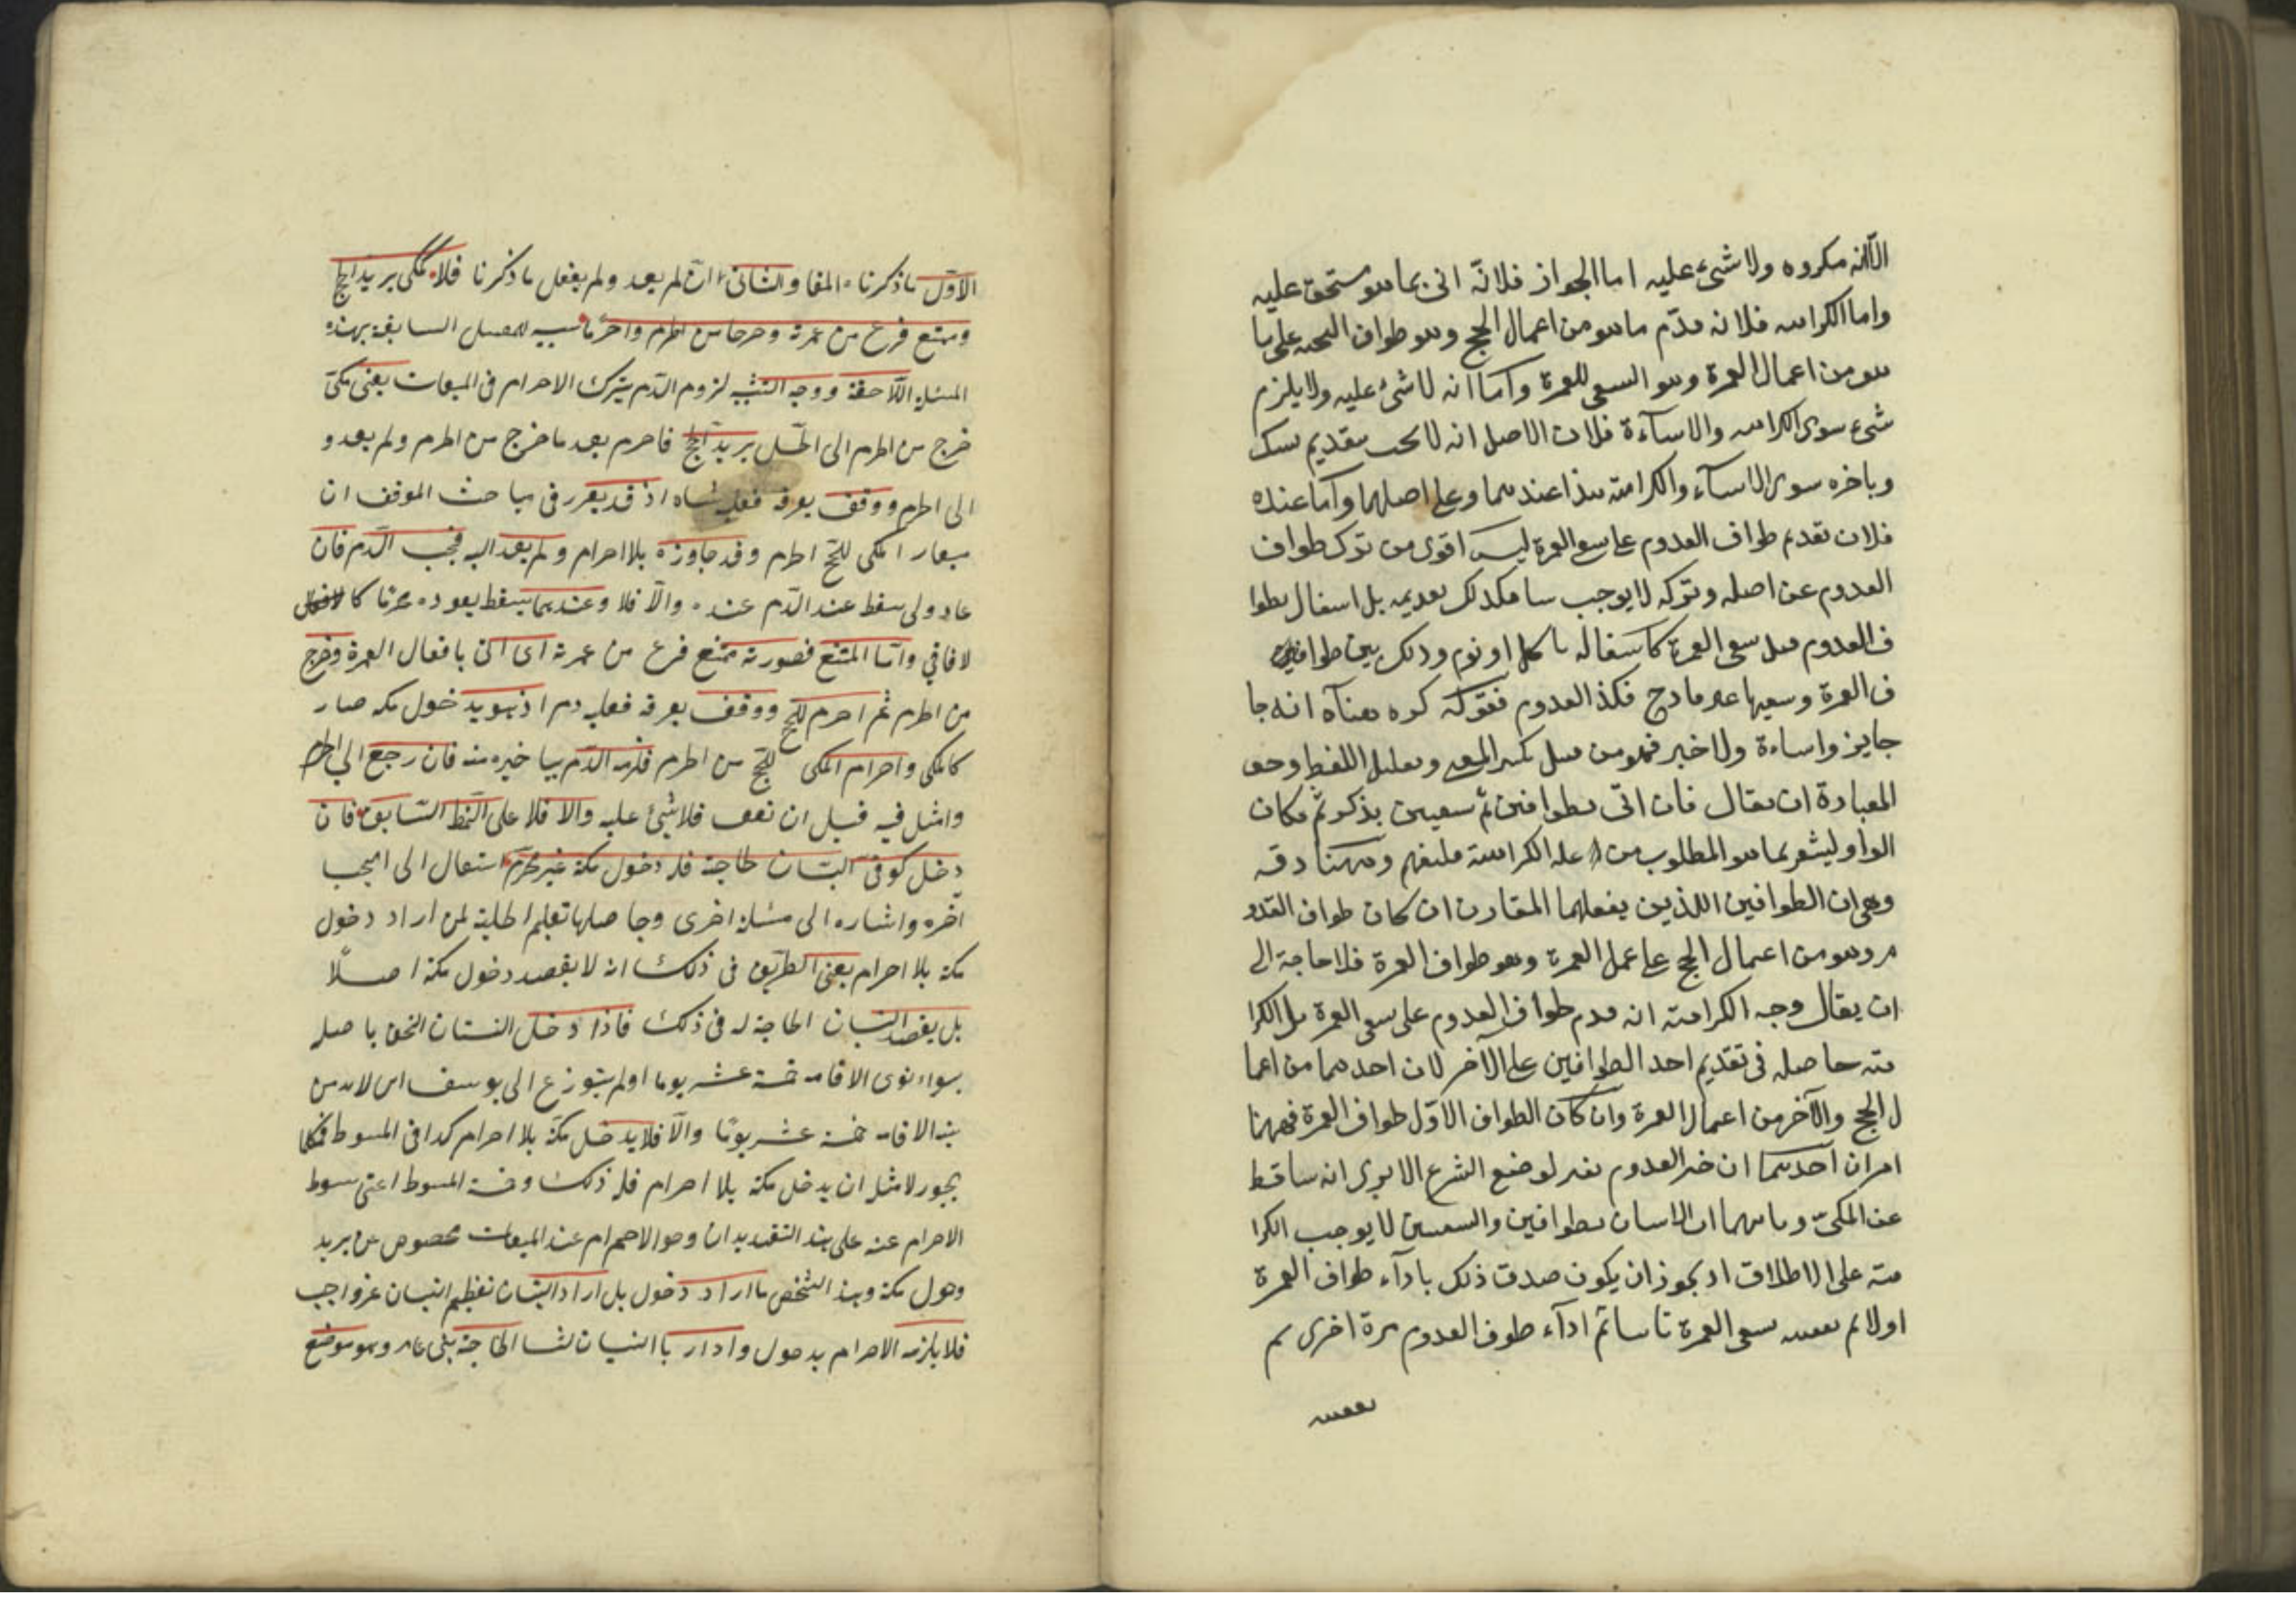 الا انه مكروه ولا شئ عليه اما الجواز فلانه اتى بما هو مستحق عليه
واما الكراهه فلانه قدّم ما هو من اعمال الحج وهو طواف التحيه على ما
هو من اعمال العمرة وهو السعى للعمرة وأما انه لا شئ عليه ولا يلزم
شىء سوى الكراهه والاسآءة فلان الاصل انه لا يجب بتقديم نسك
وتاخره سوى الاسآء والكراهته هذا عندهما وعلى اصلهما وأما عنده
فلان تقديم طواف القدوم على سعى العمرة ليس اقوى من ترك طواف
القدوم عن اصله وتركه لا يوجب فكذلك تقديمه بل اشتغال بطوا
ف القدوم قبل سعى العمرة كاشتغاله باكل او نوم وذلك بين طوا
ف العمرة وسعيها غير قادح فكذا القدوم فقوله كره معناه انه جا
جايز واساءة ولا خير فهو من قبيل تكسير المعنى وتقليل اللفظ وحق
العبارة ان يقال فان اتى بطوافين ثم سعيين بذكر ثم مكان
الواو ليشعر بما هو المطلوب من علة الكراهته فليفهم وههنا دقه
وهى ان الطوافين اللذين يفعلهما المقارن ان كان طواف القدو
م وهو من اعمال الحج على عمل العمرة وهو طواف العمرة فلا حاجة الى
ان يقال وجه الكراهته انه قدم طواف القدوم على سعى العمرة بل الكرا
هته حاصله فى تقديم احد الطوافين على الآخر لان احدهما من اعما
ل الحج والآخر من اعمال العمرة وان كان الطواف الاوّل طواف العمرة فههنا
امران احدهما ان القدوم لوضع الشرع الا يرى انه ساقط
عن المكىّ وثانيهما ان الاتيان بطوافين والسعيين لا يوجب الكرا
هته على الاطلاق اذ يجوز ان يكون صدق ذلك بادآء طواف العمرة
اولا ثم تعقبه سعى العمرة ثانيا ثم ادآء طوف القدوم مرة اخرى ثم
تعقبه
الاوّل ما ذكرنا والثانى ان لم يعد ولم يفعل ما ذكرنا فلا كمكى يريد الحج
ومتمتع فرغ من عمرته وخرجا من الحرم واحرما تشبيه للمسئلة السابقة بهذه
المسئلة اللاحقة ووجه التشبيه لزوم الدم بترك الاحرام فى الميقات يعنى مكىّ
خرج من الحرم الى الحل يريد الحج فاحرم بعد ما خرج من الحرم ولم يعد و
الى الحرم ووقف بعرفه فعليه شاه اذ قد تقرر فى مباحث الموقف ان
ميقات المكى للحج الحرم وقد جاوزه بلا احرام ولم يعد اليه فيجب الدم فان
عاد ولبى سقط عند الدّم عنده والّا فلا وعندهما يسقط بعوده محرما كا
لافاقي واما المتمتع فصورته متمتع فرغ من عمرته اى اتى بافعال العمرة وخرج
من الحرم ثم احرم للحج ووقف بعرفه فعليه دم اذ هو بدخول مكه صار
كالمكى واحرام المكى للحج من الحرم فلزمه الدّم بتاخيره منه فان رجع الي الحرم
واهل فيه قبل ان يقف فلا شئ عليه والا فلا على النمط السّابق فان
دخل كوفى البستان لحاجة فله دخول مكة غير محرم انتقال الى
آخره واشاره الى مسئلة اخرى وحاصلها تعليم الحيلة لمن اراد دخول
مكة بلا احرام يعنى الطريق فى ذلك انه لا يقصد دخول مكة اصلًا
بل يقصد البستان لحاجة له فى ذلك فاذا دخل البستان التحق باهله
سواء نوى الاقامة خمسة عشر يوما اولم ينو وعن ابى يوسف انه لابد من
نية الاقامة خمسة عشر يومًا والّا فلا يدخل مكة بلا احرام كذا فى المبسوط فكما
يجوز لاهله ان يدخل مكة بلا احرام فله ذلك وفى المبسوط سقوط
الاحرام عنه على هذا التقدير ان وجوب الاحرام عند الميقات مخصوص بمن يريد
دخول مكة وهذا الشخص ما اراد دخول بل اراد البستان تعظيم البستان غير واجب
فلا يلزمه الاحرام بدخول وادار باالبستان بستان الحاجة بنى عامر وهو موضع